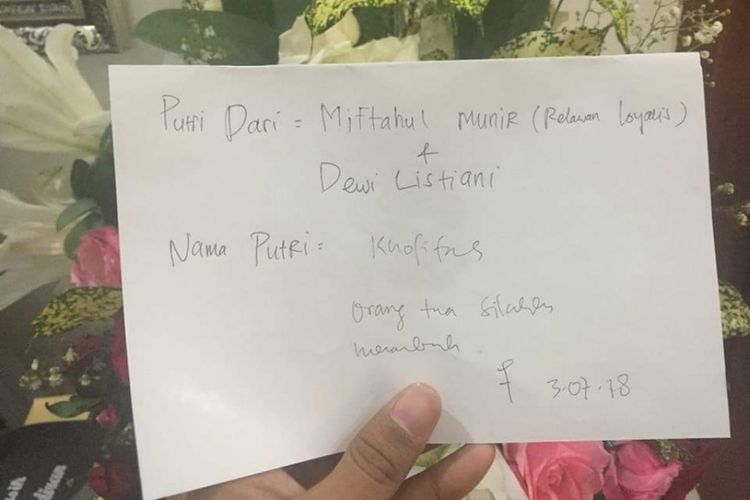 Putri Dari = Miftahul Munir (Relawan Loyalis)
&
Dewi Listiani
Nama Putri = Khofifas
orang tua silahkan
menambah.
3.07.18